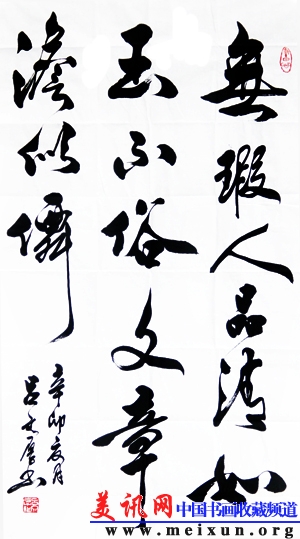 無瑕人品清如
玉不俗文章
澹似僊
辛卯夏月
美讯网
中国书画收藏频道
www.meixun.org